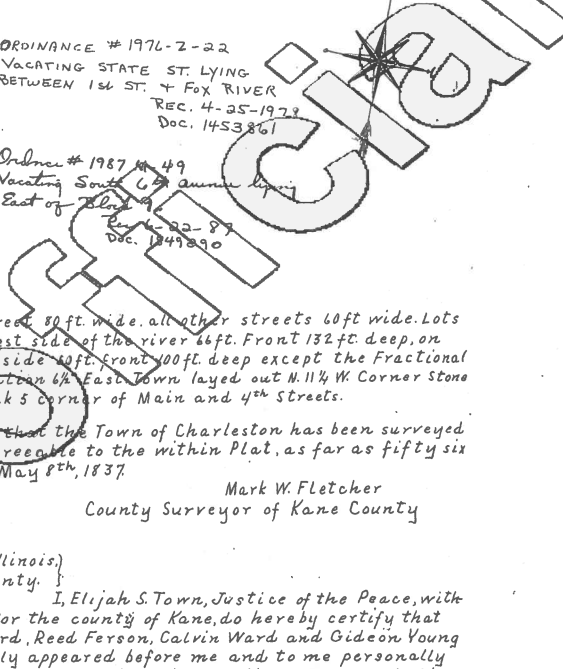 ORDINANCE # 1976-Z-22
VACATING STATE ST. LYING
BETWEEN 1st ST. & FOX RIVER
REC. 4-25-1978
DOC. 1453861
Ordnce # 1987 M 49
Vacating South 6th avenue lying
East of Block 9.
Rec. 6-22-87
Doc. 1849890
80 ft. wide. all other streets 60 ft wide. Lots
side of the river 66 ft. Front 132 ft. deep, on
side 60 ft. front 100 ft. deep except the Fractional
6½ East Town layed out N. 11¼ W. Corner Stone
5 corner of Main and 4th Streets.
that the Town of Charleston has been surveyed
to the within Plat, as far as fifty six
May 8th, 1837.
Mark W. Fletcher
County Surveyor of Kane County
I, Elijah S. Town, Justice of the Peace, with
the county of Kane, do hereby certify that
Reed Ferson, Calvin Ward and Gideon Young
appeared before me and to me personally
Official